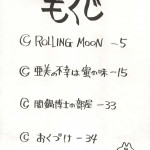 もくじ
© ROLLING MOON ～5
© 亜美の不幸は蜜の味～15
© 闇鍋博士の部屋 ～33
© おくづけ～34